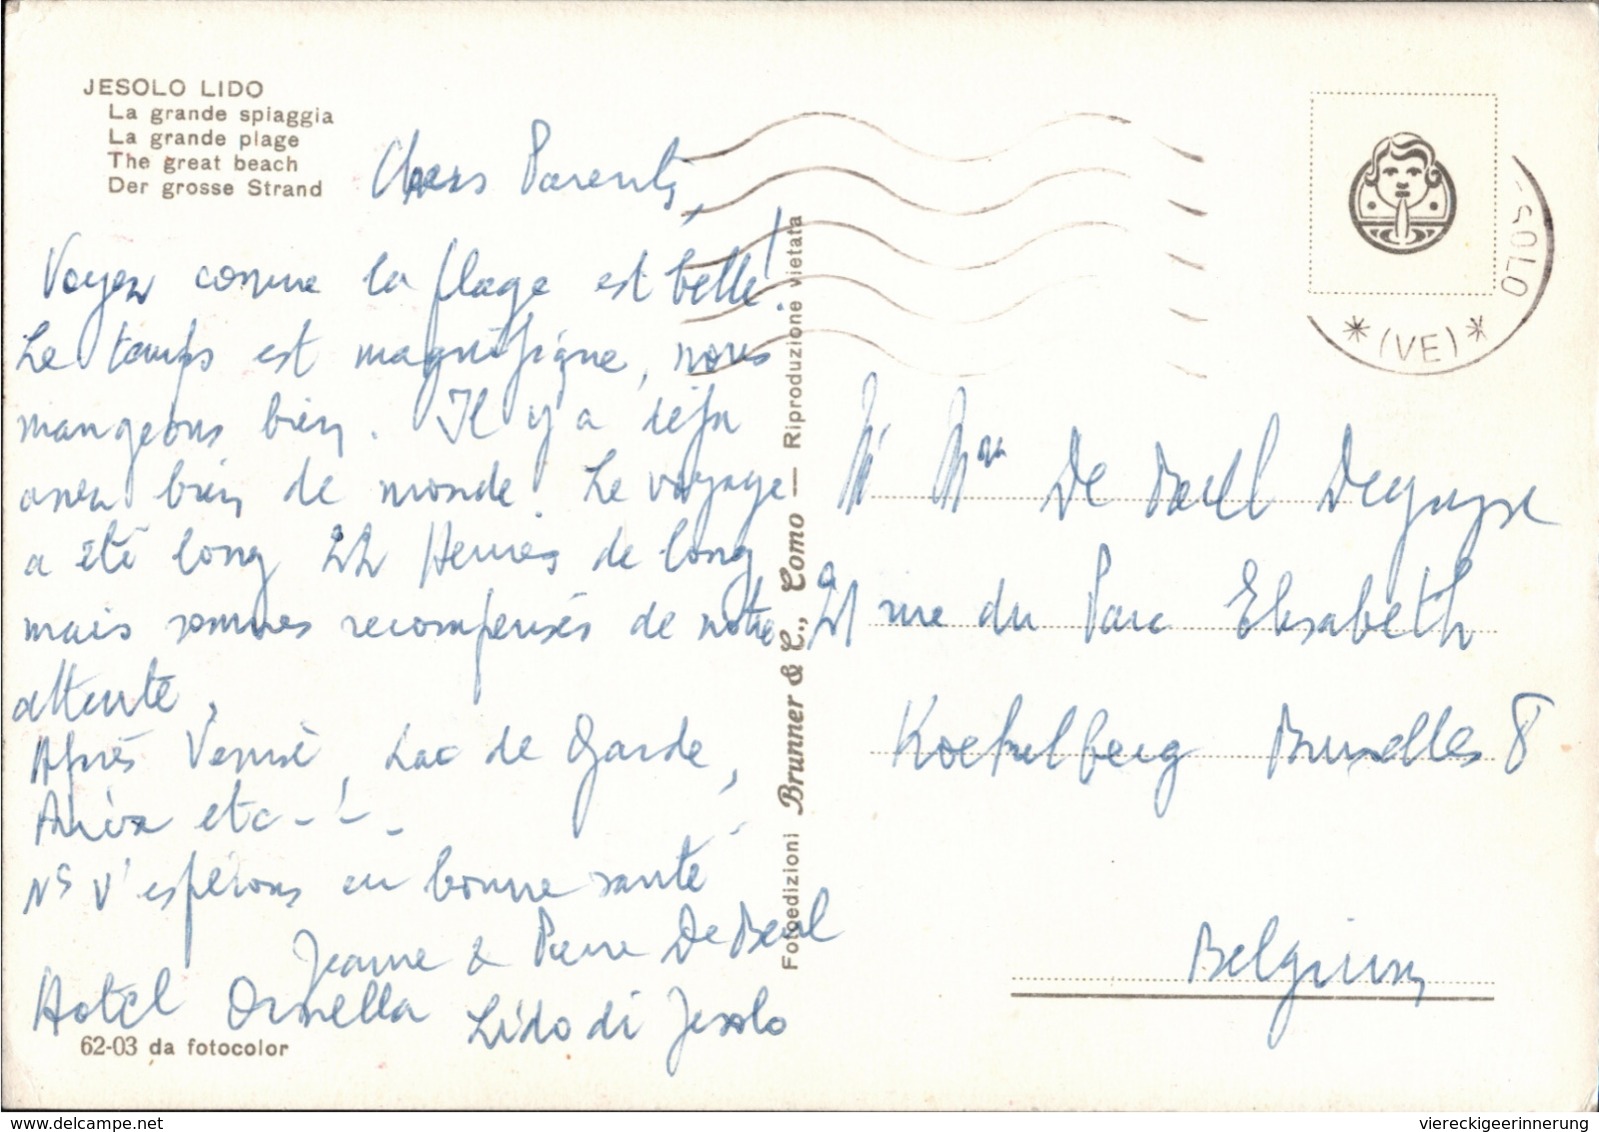 JESOLO LIDO
La grande spiaggia
La grande plage
The great beach
Der grosse Strand
Chers Parents,
Voyez comme la plage est belle!
Le temps est magnifique, nous
mangeons bien. Il y a déjà
assez bien de monde. Le voyage
a été long 22 Heures de long
mais sommes recompensés de notre
attente,
Après Venise, Lac de Garde,
etc - ! -
Ns v'espérons en bonne santé
Jeanne & Pierre De
Hotel Ornella Lido di Jesolo
62-03 da fotocolor
Fotoedizioni Brunner & C., Como — Riproduzione vietata
SOLO
* (VE) *
M Mme De
21 rue du Parc Elisabeth
Koekelberg Bruxelles 8
Belgium
viereckigeerinnerung